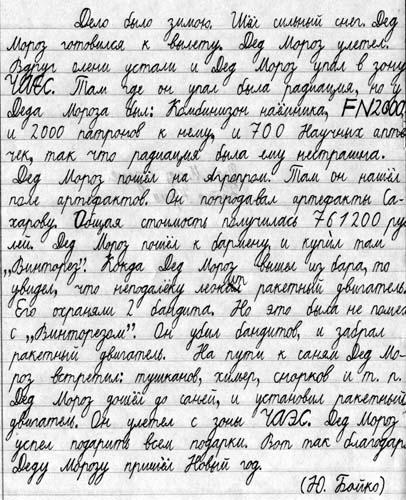 Дело было зимою. Шёл сильный снег. Дед
Мороз готовился к вылету. Дед Мороз улетел.
Вдруг олени устали и Дед Мороз упал в зону
ЧАЭС. Там где он упал была радиация, но у
Деда Мороза был: Комбинизон наёмника, FN2000,
и 2000 патронов к нему, и 700 Научных апте
чек, так что радиация была ему нестрашна.
Дед Мороз пошёл на Агропром. Там он нашёл
поле артефактов. Он попродавал артефакты Са-
харову. Общая стоимость получилась 761200 руб
лей. Дед Мороз пошёл к бармену, и купил там
„Винторез". Когда Дед Мороз вышы из бара, то
увидел, что неподалёку лежит ракетный двигатель.
Его охраняли 2 бандита. Но это была не помеха
с „Винторезом". Он убил бандитов, и забрал
ракетный двигатель. На пути к саням Дед Мо-
роз встретил: тушканов, химер, снорков и т. п.
Дед Мороз дошёл до саней, и установил ракетный
двигатель. Он улетел с зоны ЧАЭС. Дед Мороз
успел подарить всем подарки. Вот так благодаря
Деду Морозу пришёл Новый год.
(Ю. Бойко)